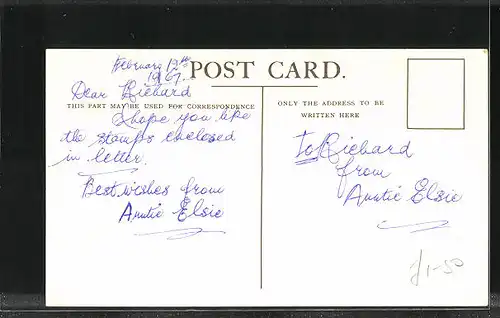 February 12th
1967.
POST CARD.
Dear Richard
THIS PART MAY BE USED FOR CORRESPONDENCE
I hope you like
the stamps enclosed
in letter.
Best wishes from
Auntie Elsie
ONLY THE ADDRESS TO BE
WRITTEN HERE
To Richard
from
Auntie Elsie
£1-50